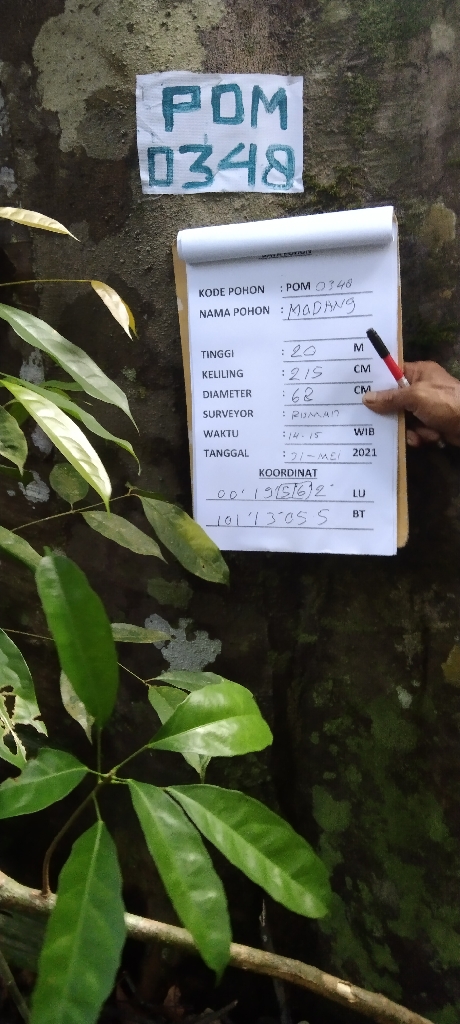 POM
0348
KODE POHON : POM 0348
NAMA POHON : MADANG
TINGGI : 20 M
KELILING : 215 CM
DIAMETER : 68 CM
SURVEYOR :
WAKTU : 14.15 WIB
TANGGAL : 31-MEI 2021
KOORDINAT
00'19'562' LU
101'13'055 BT